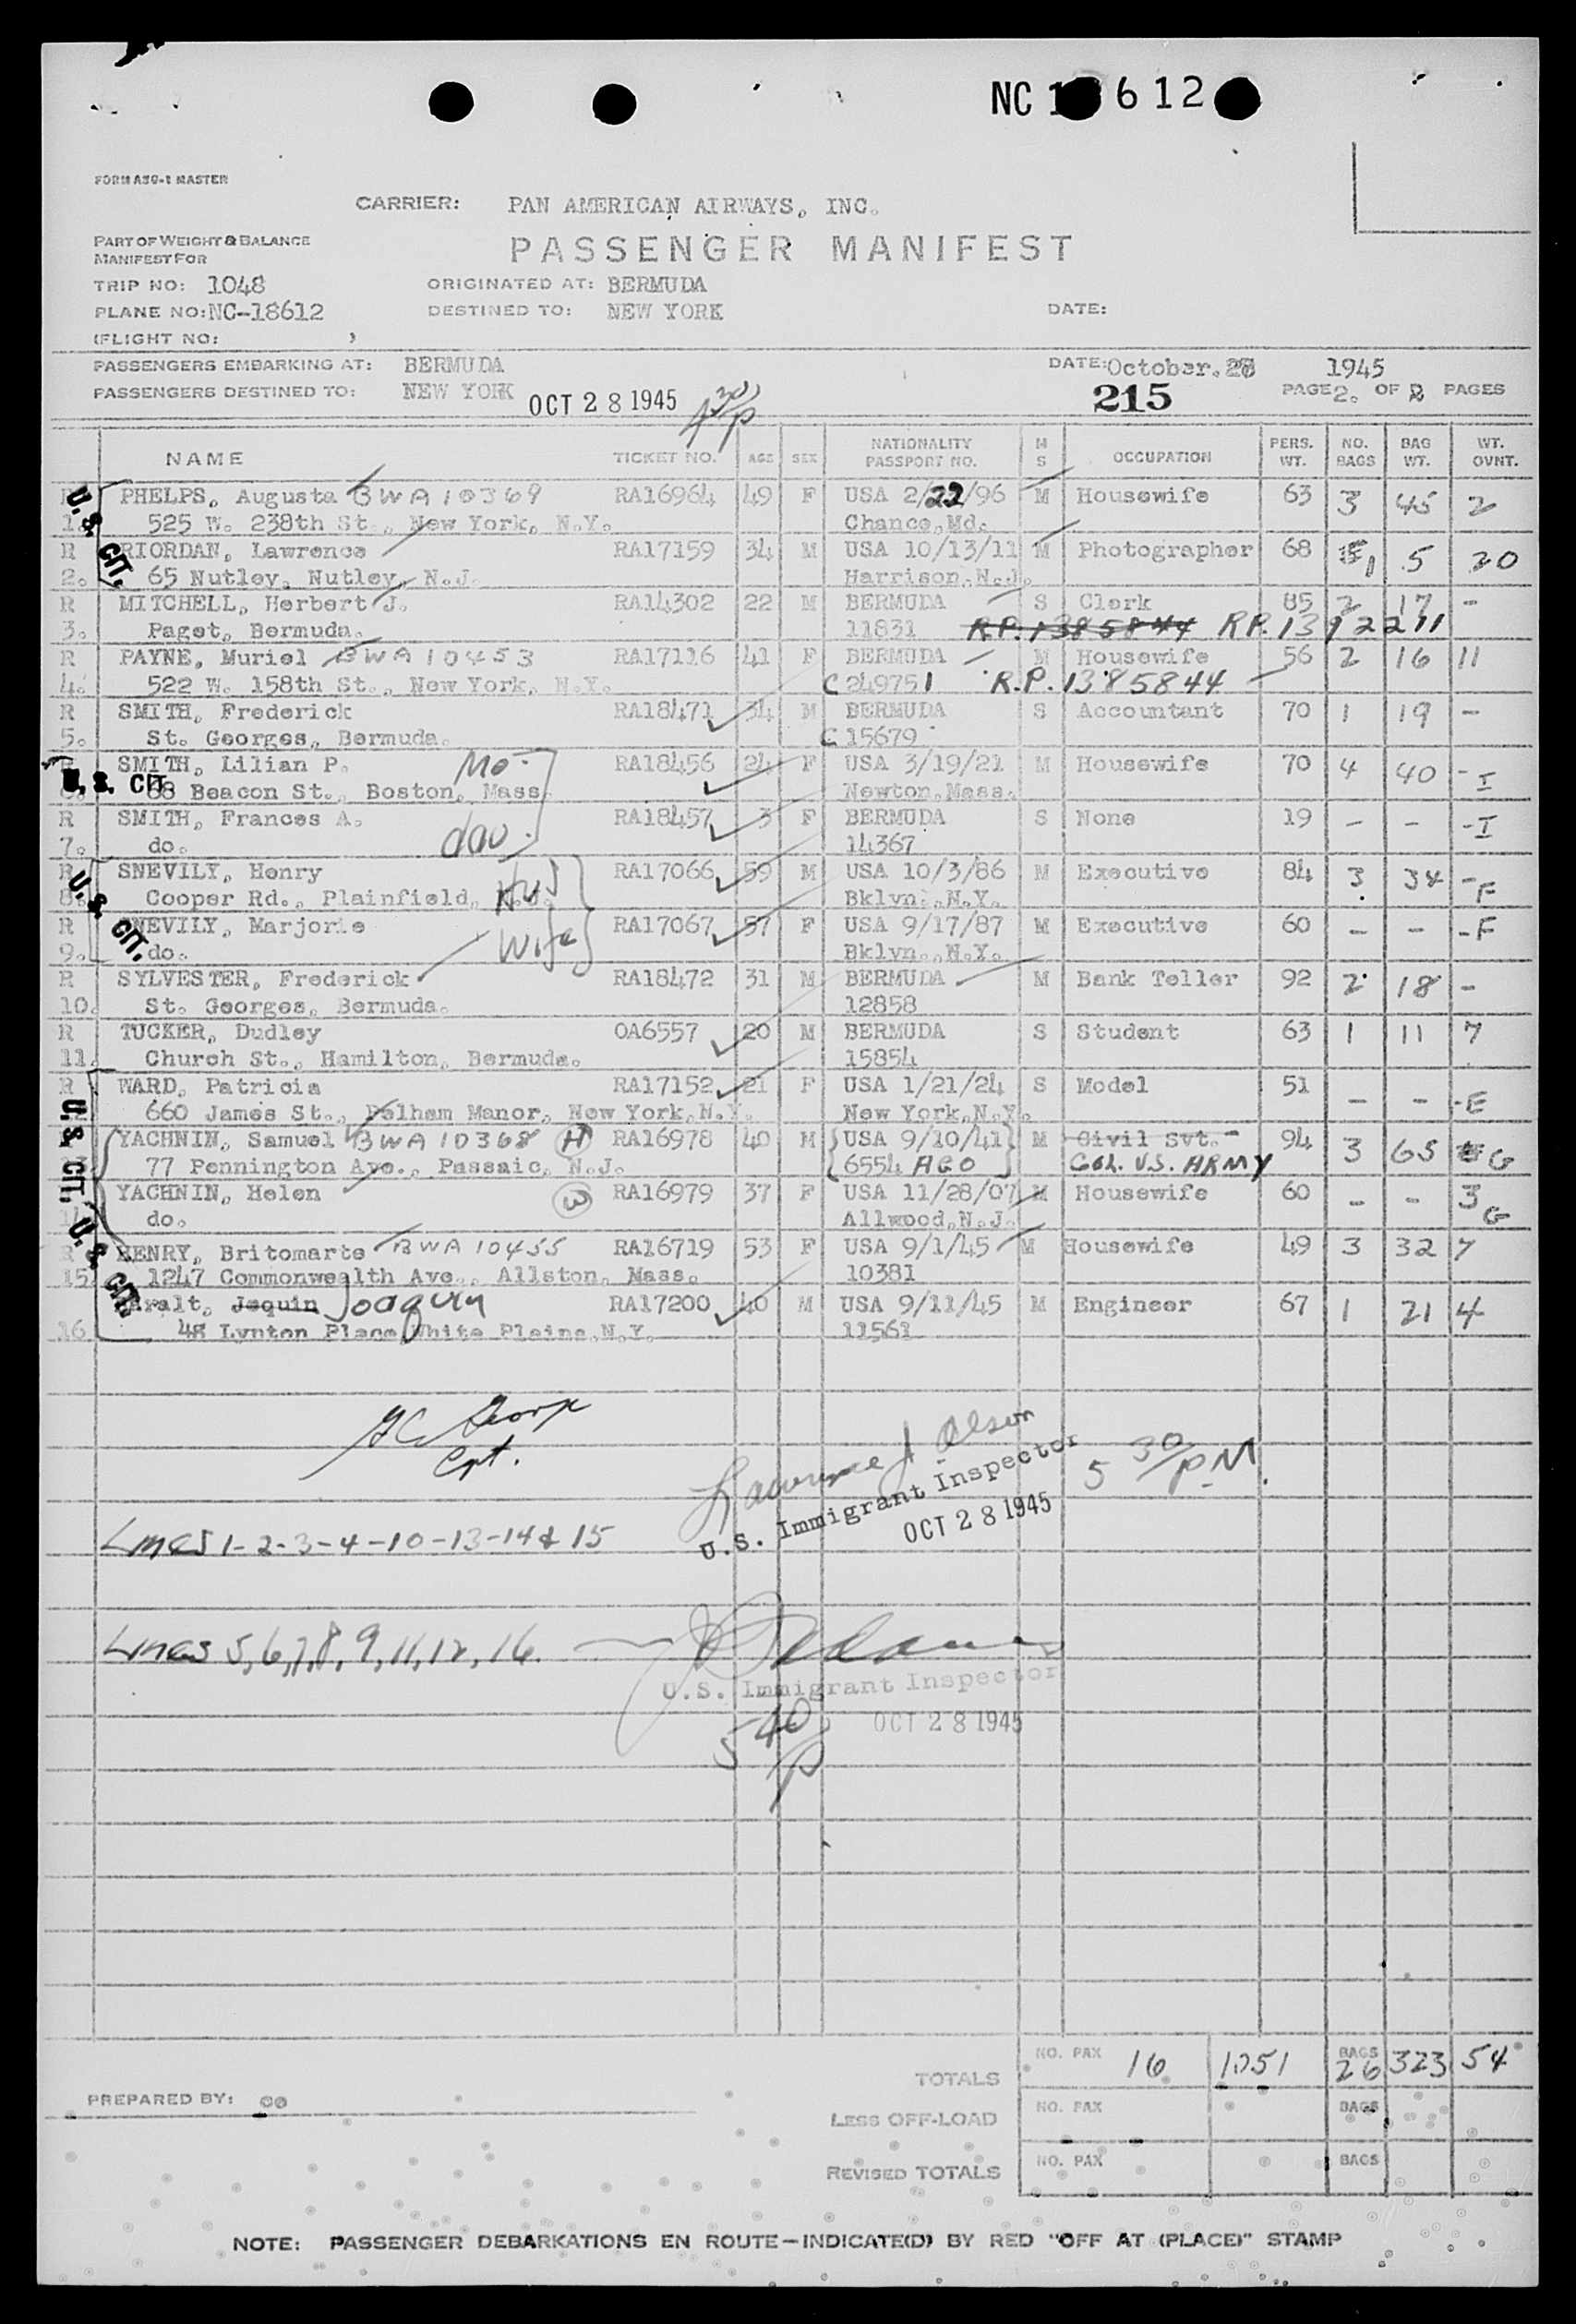 NC 1 612
FORM ASG-1 MASTER
CARRIER: PAN AMERICAN AIRWAYS, INC.
PART OF WEIGHT & BALANCE
MANIFEST FOR
PASSENGER MANIFEST
TRIP NO: 1048 ORIGINATED AT: BERMUDA
PLANE NO: NC-18612 DESTINED TO: NEW YORK DATE:
(FLIGHT NO: )
PASSENGERS EMBARKING AT: BERMUDA DATE: October. 28 1945
PASSENGERS DESTINED TO: NEW YORK OCT 28 1945 215 PAGE 2. OF 2 PAGES
NAME TICKET NO. AGE SEX NATIONALITY PASSPORT NO. M S OCCUPATION PERS. WT. NO. BAGS BAG WT. WT. OVNT.
U.S. CIT.
PHELPS, Augusta BWA 10369 RA16964 49 F USA 2/22/96 M Housewife 63 3 45 2
1. 525 W. 238th St., New York, N.Y. Chance, Md.
R RIORDAN, Lawrence RA17159 34 M USA 10/13/11 M Photographer 68 1 5 20
2. 65 Nutley, Nutley, N.J. Harrison, N.J.
R MITCHELL, Herbert J. RA14302 22 M BERMUDA S Clerk 85 2 17 -
3. Paget, Bermuda. 11831 R.P. 1385844 R.P. 1312211
R PAYNE, Muriel BWA 10453 RA17116 41 F BERMUDA M Housewife 56 2 16 11
4. 522 W. 158th St., New York, N.Y. C 249751 R.P. 1385844
R SMITH, Frederick RA18471 34 M BERMUDA S Accountant 70 1 19 -
5. St. Georges, Bermuda. C 15679
SMITH, Lilian P. Mo- RA18456 24 F USA 3/19/21 M Housewife 70 4 40 - I
U.S. CIT. 68 Beacon St., Boston, Mass. Newton, Mass.
R SMITH, Frances A. RA18457 3 F BERMUDA S None 19 - - - I
7. do. dau. 14367
R SNEVILY, Henry RA17066 59 M USA 10/3/86 M Executive 84 3 34 - F
8. Cooper Rd., Plainfield, N.J. Hus Bklyn., N.Y.
U.S. CIT.
R SNEVILY, Marjorie RA17067 57 F USA 9/17/87 M Executive 60 - - - F
9. do. Wife Bklyn., N.Y.
R SYLVESTER, Frederick RA18472 31 M BERMUDA M Bank Teller 92 2 18 -
10. St. Georges, Bermuda. 12858
R TUCKER, Dudley OA6557 20 M BERMUDA S Student 63 1 11 7
11. Church St., Hamilton, Bermuda. 15854
R WARD, Patricia RA17152 21 F USA 1/21/24 S Model 51 - - - E
660 James St., Pelham Manor, New York, N.Y. New York, N.Y.
U.S. CIT.
YACHNIN, Samuel BWA 10368 H RA16978 40 M USA 9/10/41 M Civil Svt. 94 3 65 G
77 Pennington Ave., Passaic, N.J. 6554 AGO Col. U.S. ARMY
YACHNIN, Helen W RA16979 37 F USA 11/28/07 M Housewife 60 - - 3 G
14 do. Allwood, N.J.
U.S. CIT.
R HENRY, Britomarte BWA 10455 RA16719 53 F USA 9/1/45 M Housewife 49 3 32 7
15. 1247 Commonwealth Ave., Allston, Mass. 10381
ralt, Jequin Joaquin RA17200 40 M USA 9/11/45 M Engineer 67 1 21 4
16. 48 Lynton Place White Plains, N.Y. 11561
Cpt.
Lawrence J Olson
U.S. Immigrant Inspector
OCT 28 1945
5 30/PM.
Lines 1-2-3-4-10-13-14 & 15
Lines 5,6,7,8,9,11,12,16.
U.S. Immigrant Inspector
OCT 28 1945
5 40/P
TOTALS NO. PAX 16 1051 BAGS 26 323 54
PREPARED BY: co
LESS OFF-LOAD NO. PAX BAGS
REVISED TOTALS NO. PAX BAGS
NOTE: PASSENGER DEBARKATIONS EN ROUTE—INDICATE(D) BY RED "OFF AT (PLACE)" STAMP